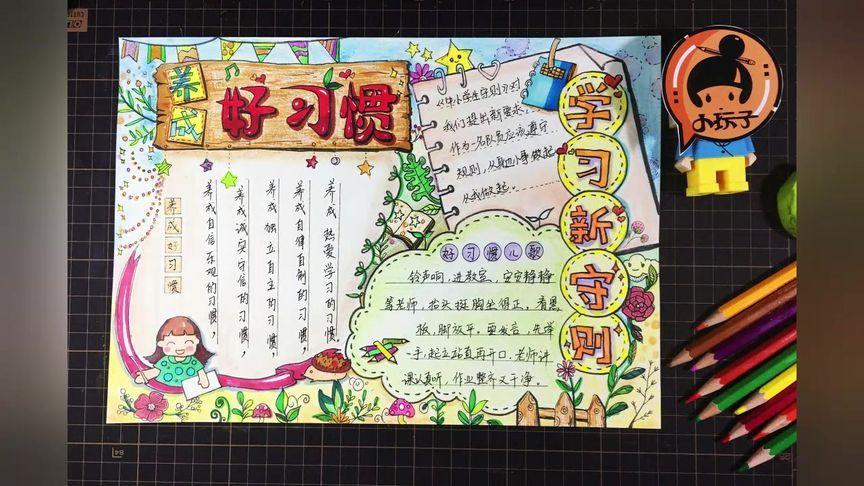 养成
好习惯
养成好习惯
养成热爱学习的习惯
养成自律自制的习惯,
养成独立自主的习惯,
养成诚实守信的习惯,
养成自信乐观的习惯,
《中小学生守则》对
我们提出新要求。
作为一名队员应该遵守
规则,从身边小事做起
从我做起。
学习新守则
好习惯儿歌
铃声响,进教室,安安静静
等老师,抬头挺胸坐得正。看黑
板,脚放平,要发言,先举
手,起立站直再开口,老师讲
课认真听,作业整齐又干净。
小玩子